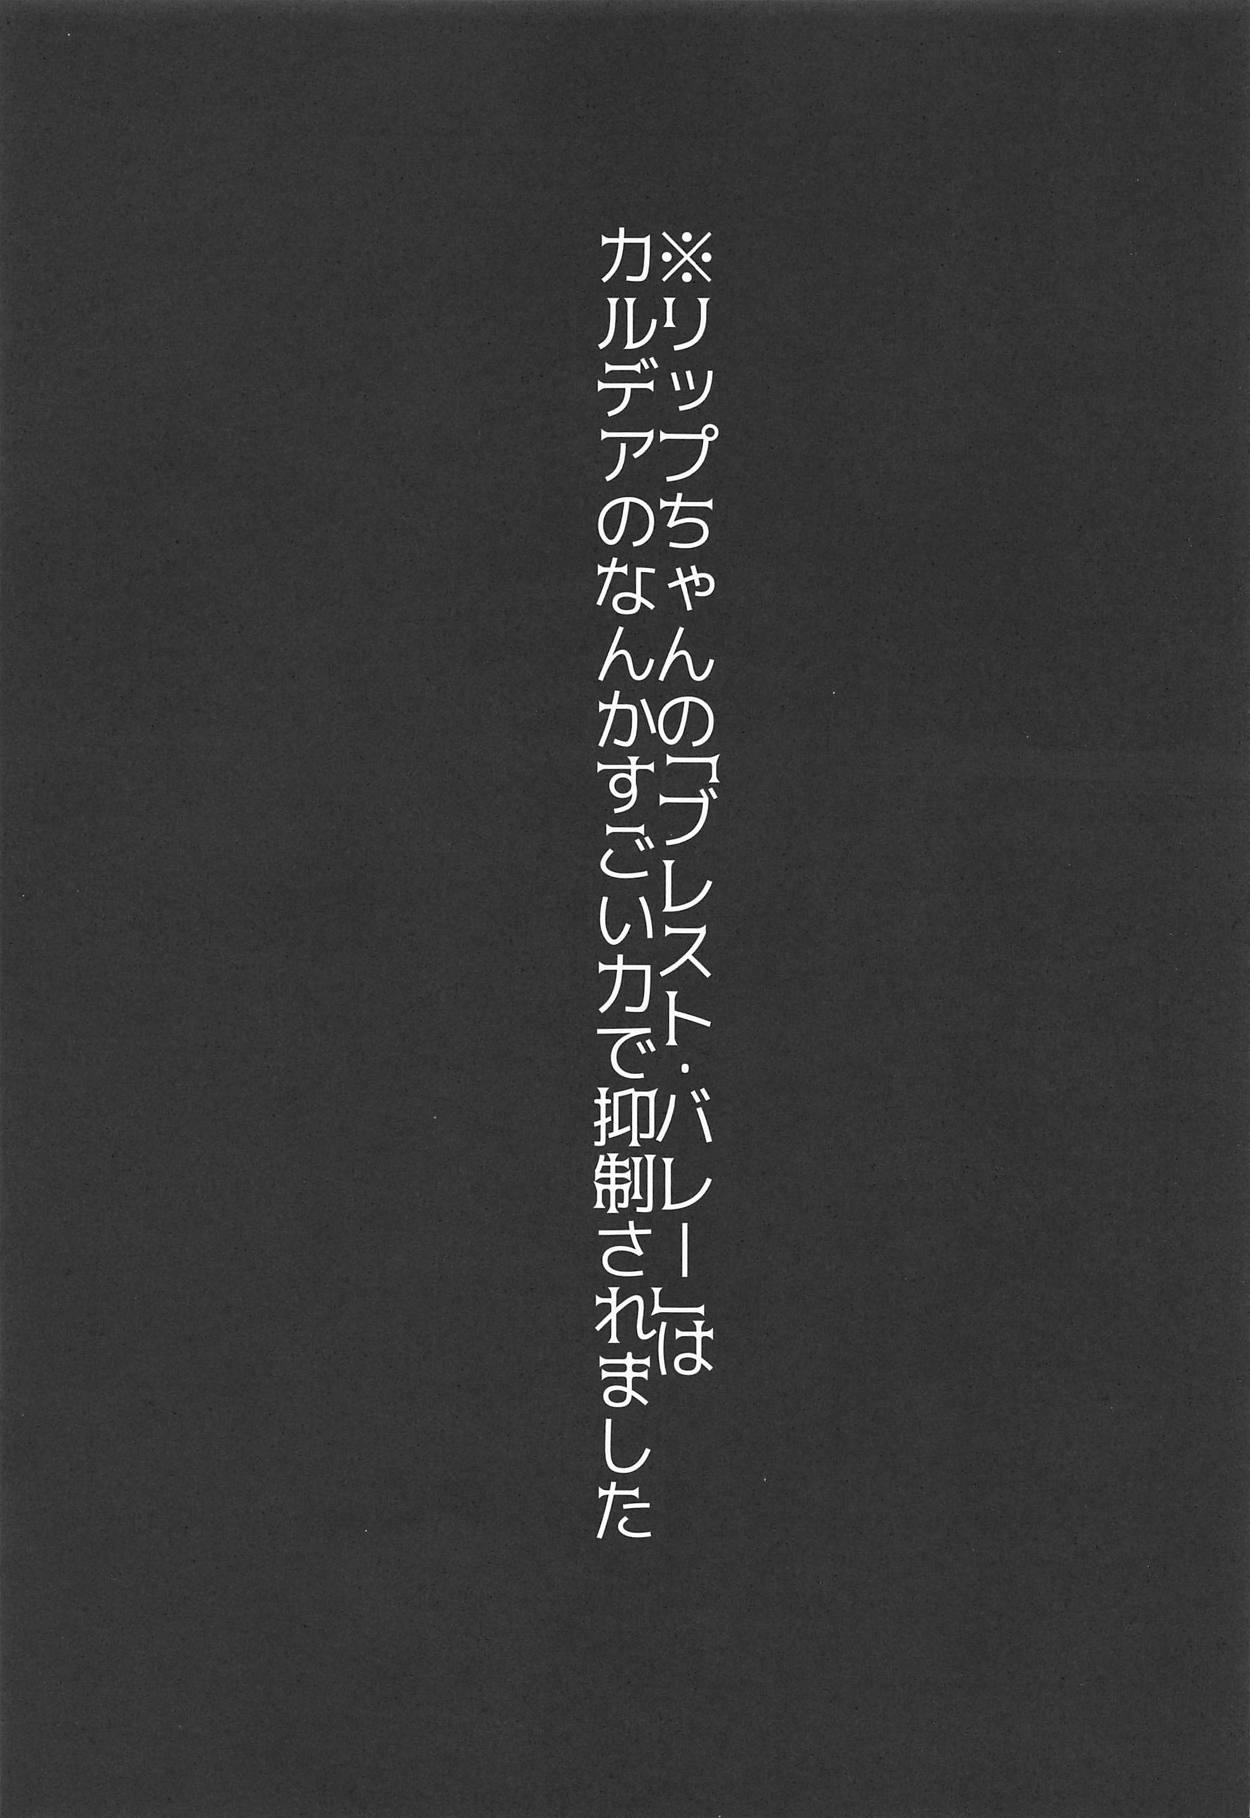 ※リップちゃんの「ブレスト・バレー」は
カルデアのなんかすごい力で抑制されました